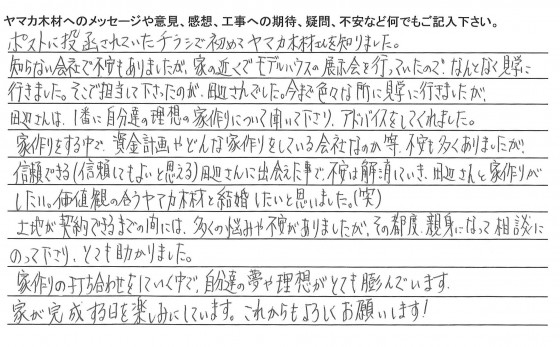 ヤマカ木材へのメッセージや意見、感想、工事への期待、疑問、不安など何でもご記入下さい。
ポストに投函されていたチラシで初めてヤマカ木材さんを知りました。
知らない会社で不安もありましたが、家の近くでモデルハウスの展示会を行っていたので、なんとなく見学に
行きました。そこで担当して下さったのが、田辺さんでした。今まで色々な所に見学に行きましたが、
田辺さんは、1番に自分達の理想の家作りについて聞いて下さり、アドバイスをしてくれました。
家作りをする中で、資金計画やどんな家作りをしている会社なのか等、不安も多くありましたが、
信頼できる(信頼してもよいと思える)田辺さんに出会えた事で、不安は解消していき、田辺さんと家作りが
したい。価値観の合うヤマカ木材と結婚したいと思いました。(笑)
土地が契約できるまでの間には、多くの悩みや不安がありましたが、その都度、親身になって相談に
のって下さり、とても助かりました。
家作りの打ち合わせをしていく中で、自分達の夢や理想がとても膨んでいます。
家が完成する日を楽しみにしています。これからもよろしくお願いします!